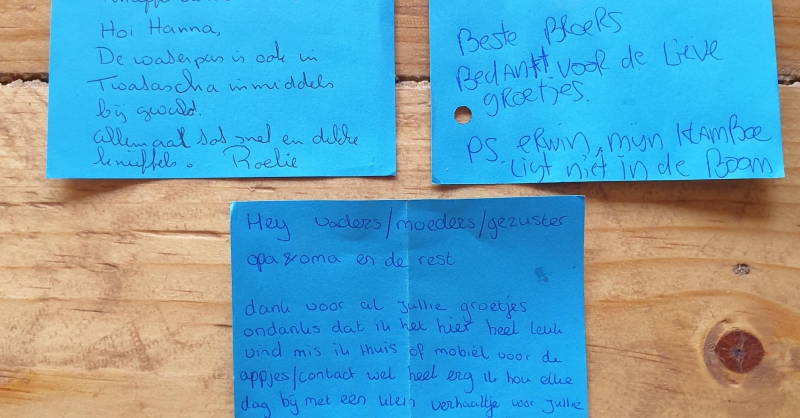 Hoi Hanna,
De waterpas is ook in
inmiddels
bij
allemaal tot snel en dikke
knuffels. Roelie
Beste Bloers
Bedankt voor de Lieve
groetjes.
PS. erwin, mijn
Ligt niet in de Boom
Hey vaders/moeders/gezuster
opa & oma en de rest
dank voor al jullie groetjes
ondanks dat ik het hier heel leuk
vind mis ik thuis of mobiel voor de
appjes/contact wel heel erg ik hou elke
dag bij met een klein verhaaltje voor jullie